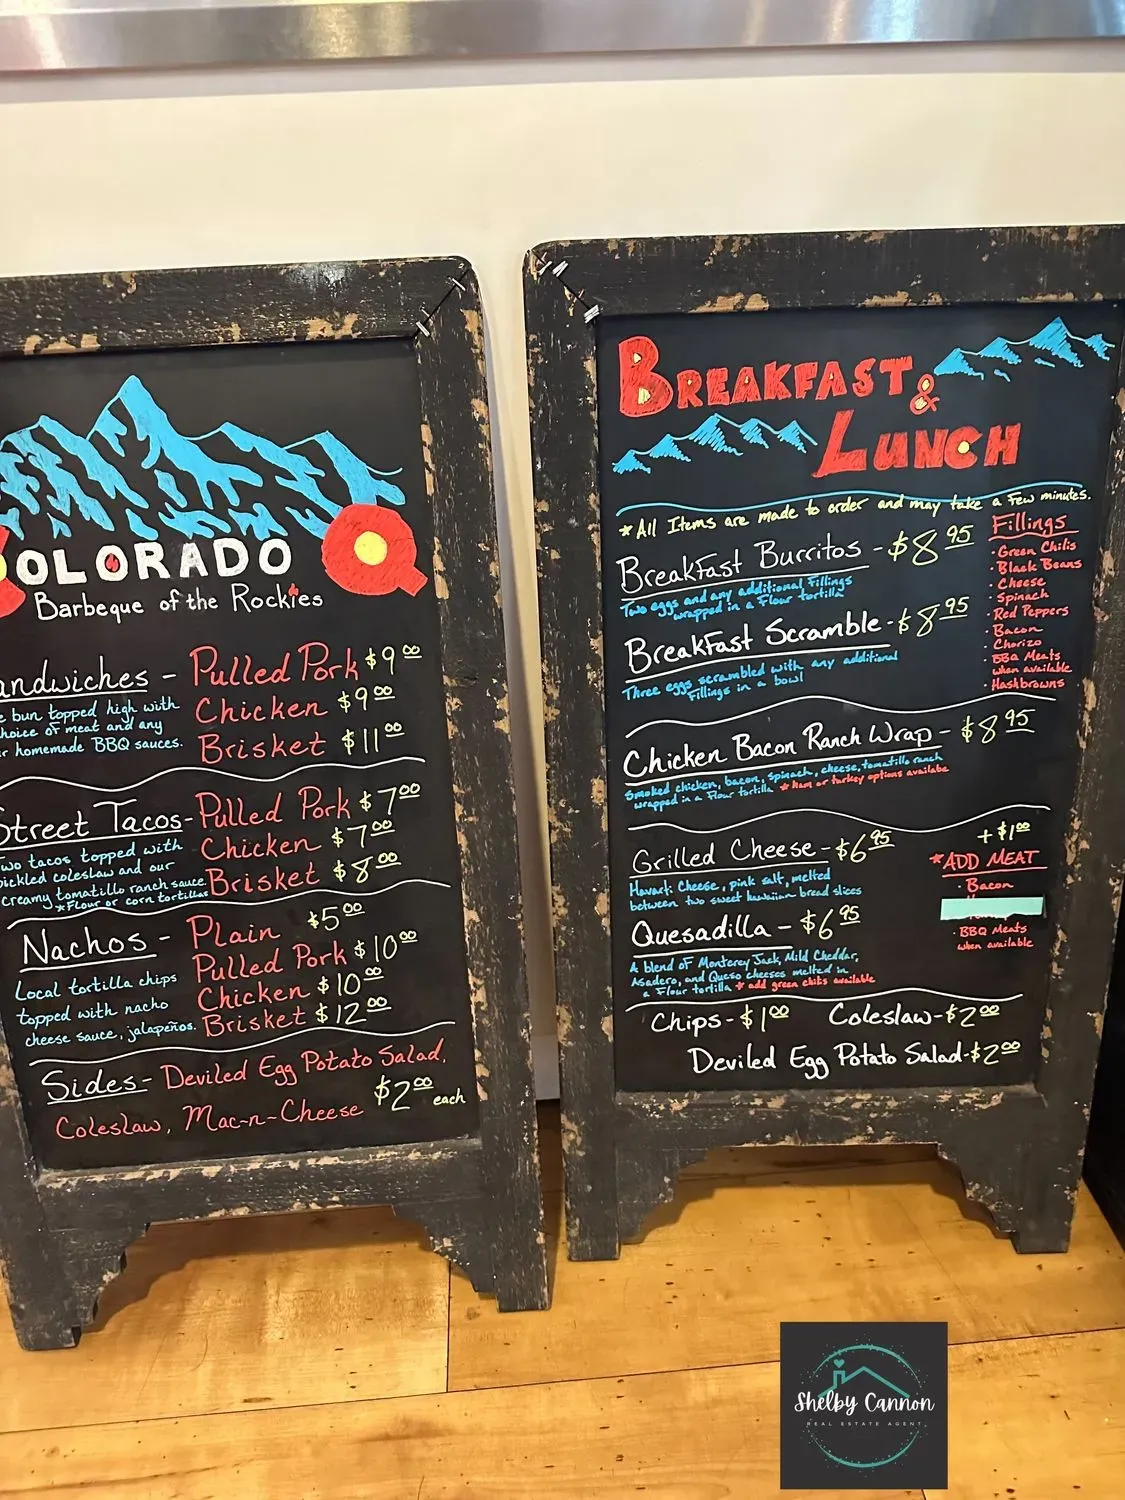 COLORADO
Barbeque of the Rockies
andwiches - Pulled Pork $9.00
Chicken $9.00
Brisket $11.00
e bun topped high with
hoice of meat and any
r homemade BBQ sauces.
Street Tacos - Pulled Pork $7.00
Chicken $7.00
Brisket $8.00
Two tacos topped with
pickled coleslaw and our
creamy tomatillo ranch sauce.
*Flour or corn tortillas
Nachos - Plain $5.00
Pulled Pork $10.00
Chicken $10.00
Brisket $12.00
Local tortilla chips
topped with nacho
cheese sauce, jalapeños.
Sides - Deviled Egg Potato Salad,
Coleslaw, Mac-n-Cheese $2.00 each
BREAKFAST &
LUNCH
*All Items are made to order and may take a few minutes.
Breakfast Burritos - $8.95
Two eggs and any additional fillings
wrapped in a flour tortilla
Breakfast Scramble - $8.95
Three eggs scrambled with any additional
fillings in a bowl
Fillings
· Green Chilis
· Black Beans
· Cheese
· Spinach
· Red Peppers
· Bacon
· Chorizo
· BBQ Meats
when available
· Hashbrowns
Chicken Bacon Ranch Wrap - $8.95
Smoked chicken, bacon, spinach, cheese, tomatillo ranch
wrapped in a flour tortilla *ham or turkey options availabe
Grilled Cheese - $6.95
Havarti Cheese, pink salt, melted
between two sweet hawaiian bread slices
Quesadilla - $6.95
A blend of Monterey Jack, Mild Cheddar,
Asadero, and Queso cheeses melted in
a flour tortilla *add green chilis available
+$1.00
*ADD MEAT
· Bacon
· BBQ Meats
when available
Chips - $1.00 Coleslaw - $2.00
Deviled Egg Potato Salad - $2.00
Shelby Cannon
REAL ESTATE AGENT